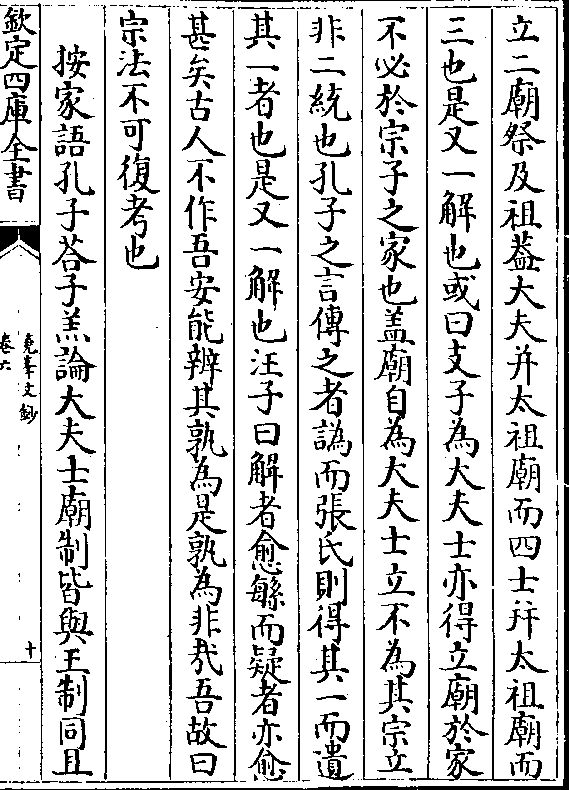 立二廟祭及祖葢大夫并太祖廟而四士并太祖廟而
三也是又一解也或曰支子為大夫士亦得立廟於家
不必於宗子之家也盖廟自為大夫士立不為其宗立
非二統也孔子之言傳之者譌而張氏則得其一而遺
其一者也是又一解也汪子曰解者愈繇而疑者亦愈
甚矣古人不作吾安能辨其孰為是孰為非㢤吾故曰
宗法不可復考也
按家語孔子荅子羔論大夫士廟制皆與王制同且
欽定四庫全書
堯峯文鈔
卷六
十